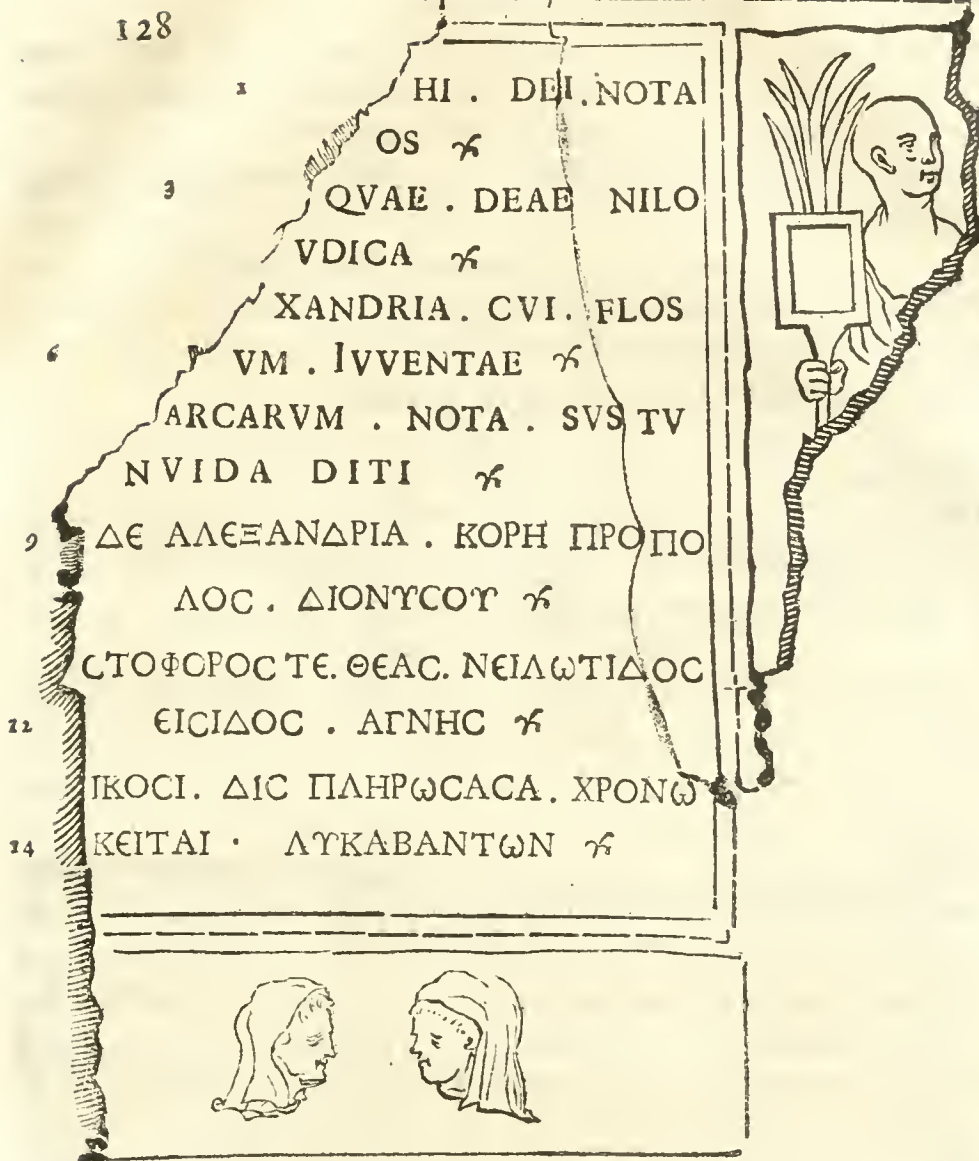 128
1 HI . DEI . NOTA
OS
3 QVAE . DEAE NILO
VDICA
XANDRIA . CVI . FLOS
6 VM . IVVENTAE
ARCARVM . NOTA . SVS TV
NVIDA DITI
9 ΔΕ ΑΛΕΞΑΝΔΡΙΑ . ΚΟΡΗ ΠΡΟΠΟ
ΛΟC . ΔΙΟΝΥCΟΥ
CΤΟΦΟΡΟC ΤΕ. ΘΕΑC. ΝΕΙΛωΤΙΔΟC
12 ΕΙCΙΔΟC . ΑΓΝΗC
ΙΚΟCΙ. ΔΙC ΠΛΗΡωCΑCΑ. ΧΡΟΝω
14 ΚΕΙΤΑΙ · ΛΥΚΑΒΑΝΤωΝ